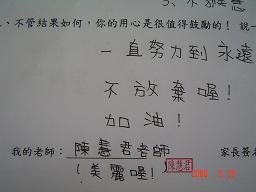 、不管結果如何，你的用心是很值得鼓勵的！說一
一直努力到永遠
不放棄喔！
加油！
我的老師：陳慧君老師 家長簽名
(美麗喔！)
陳慧君